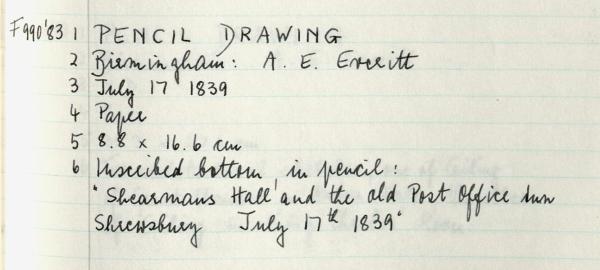 F990'83 1 PENCIL DRAWING
2 Birmingham: A. E. Everitt
3 July 17 1839
4 Paper
5 8.8 x 16.6 cm
6 Inscribed bottom, in pencil:
"Shearmans Hall and the old Post Office Inn
Shrewsbury July 17th 1839"